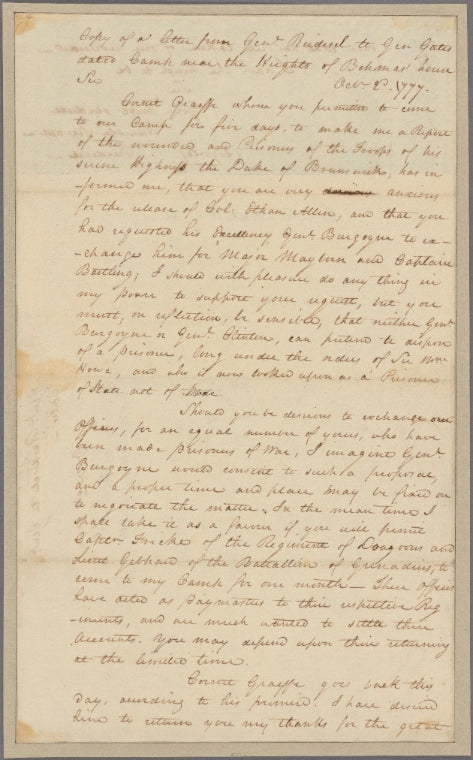 Copy of a letter from Genl. Reidesel to Gen Gates
dated Camp near the Heights of Behmas house
Sir Octr. 2d. 1777.
Cornet Graeffe whom you permitted to come
to our Camp for five days, to make me a Report
of the wounded and Prisoners of the Troops of his
serene Highness the Duke of Brunswick, has in
-formed me, that you are very anxious
for the release of Col. Ethan Allen, and that you
had requested his Excellency Genl. Burgoyne to ex-
-change him for Major Mayburn and Captain
Bartling; I should with pleasure do any thing in
my power to support your request, but you
must, on reflection, be sensible, that neither Genl.
Burgoyne or Genl. Clinton, can pretend to dispose
of a prisoner, long under the orders of Sir Wm.
Howe, and who is now looked upon as a Prisoner
of State not of
Should you be desirous to exchange our
Officers, for an equal number of yours, who have
been made prisoners of War, I imagine Genl.
Burgoyne would consent to such a proposal,
and a proper time and place may be fixed on
to negotiate the matter. In the mean time I
shall take it as a favour if you will permit
Captn. Fricke of the Regiment of Dragoons and
Lieut. Gebhard of the Battalion of Grenadiers, to
come to my Camp for one month — These officers
have acted as paymasters to their respective Reg
-iments, and are much wanted to settle their
Accounts. You may depend upon their returning
at the limited time.
Cornet Graeffe goes back this
day, according to his promise. I have desired
him to return you my thanks for the great